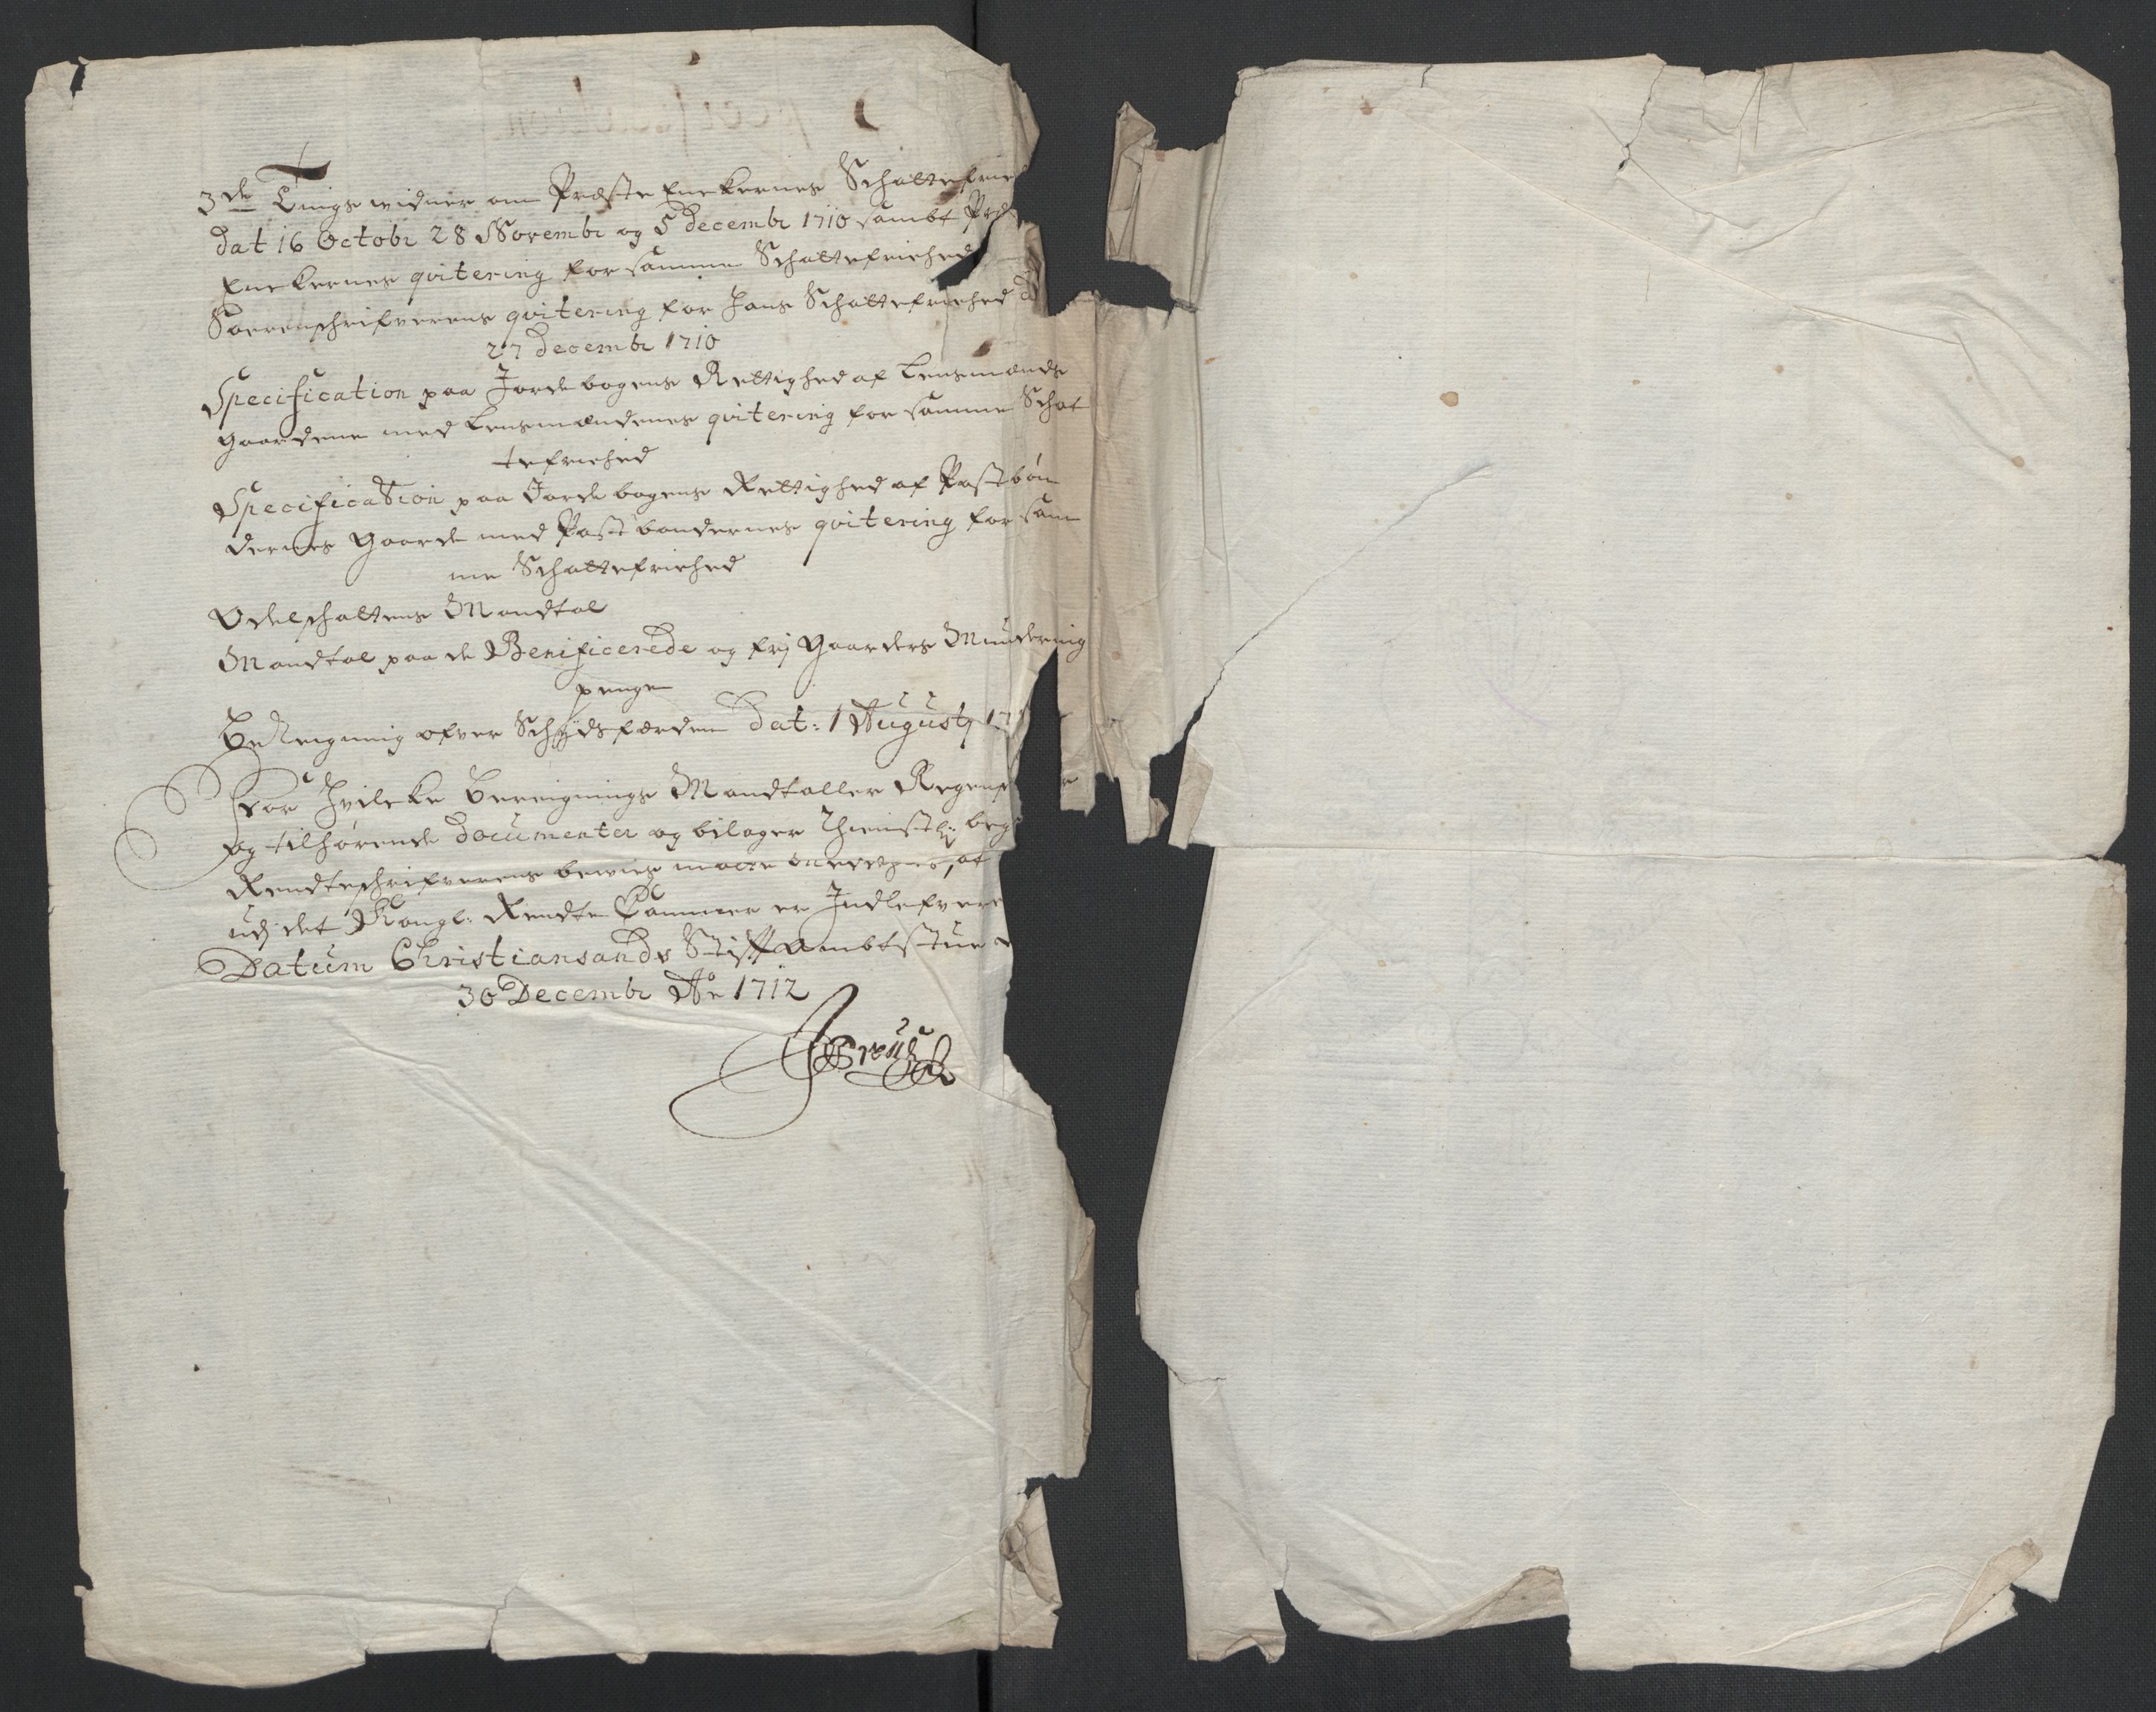 3de Tings widner om Præste Enckernes Schattefrie
Dat 16 Octobr 28 Novembr og 5 Decembr 1710 sambt Præ
Enckernes qvitering for samme Schattefriehed
Sorenschrifverens qvitering for hans Schattefriehed d
27 Decembr 1710
Specification paa Jordebogens Rettighed af Lensmænds
gaardene med Lensmændenes qvitering for samme Schat
tefriehed
Specification paa Jordebogens Rettighed af Postbøn
dernes Gaarde med Postbøndernes qvitering for sam
me Schattefriehed
Odelschattens Mandtal
Mandtal paa de Benificerede og frj Gaarders Munderings
penge
Bereigning ofver Schydsfærden Dat: 1 Augustj 17
For hvilcke Bereignings Mandtaller Regensch
og tilhørende Documenter og bilager thienstl: beg
Rendteschrifverens beviis maatte meddeles, at
udj det Kongl: Rendte Cammer er Indlefvere
Datum Christiansands Stiftambtstue d
30 Decembr Ao 1712